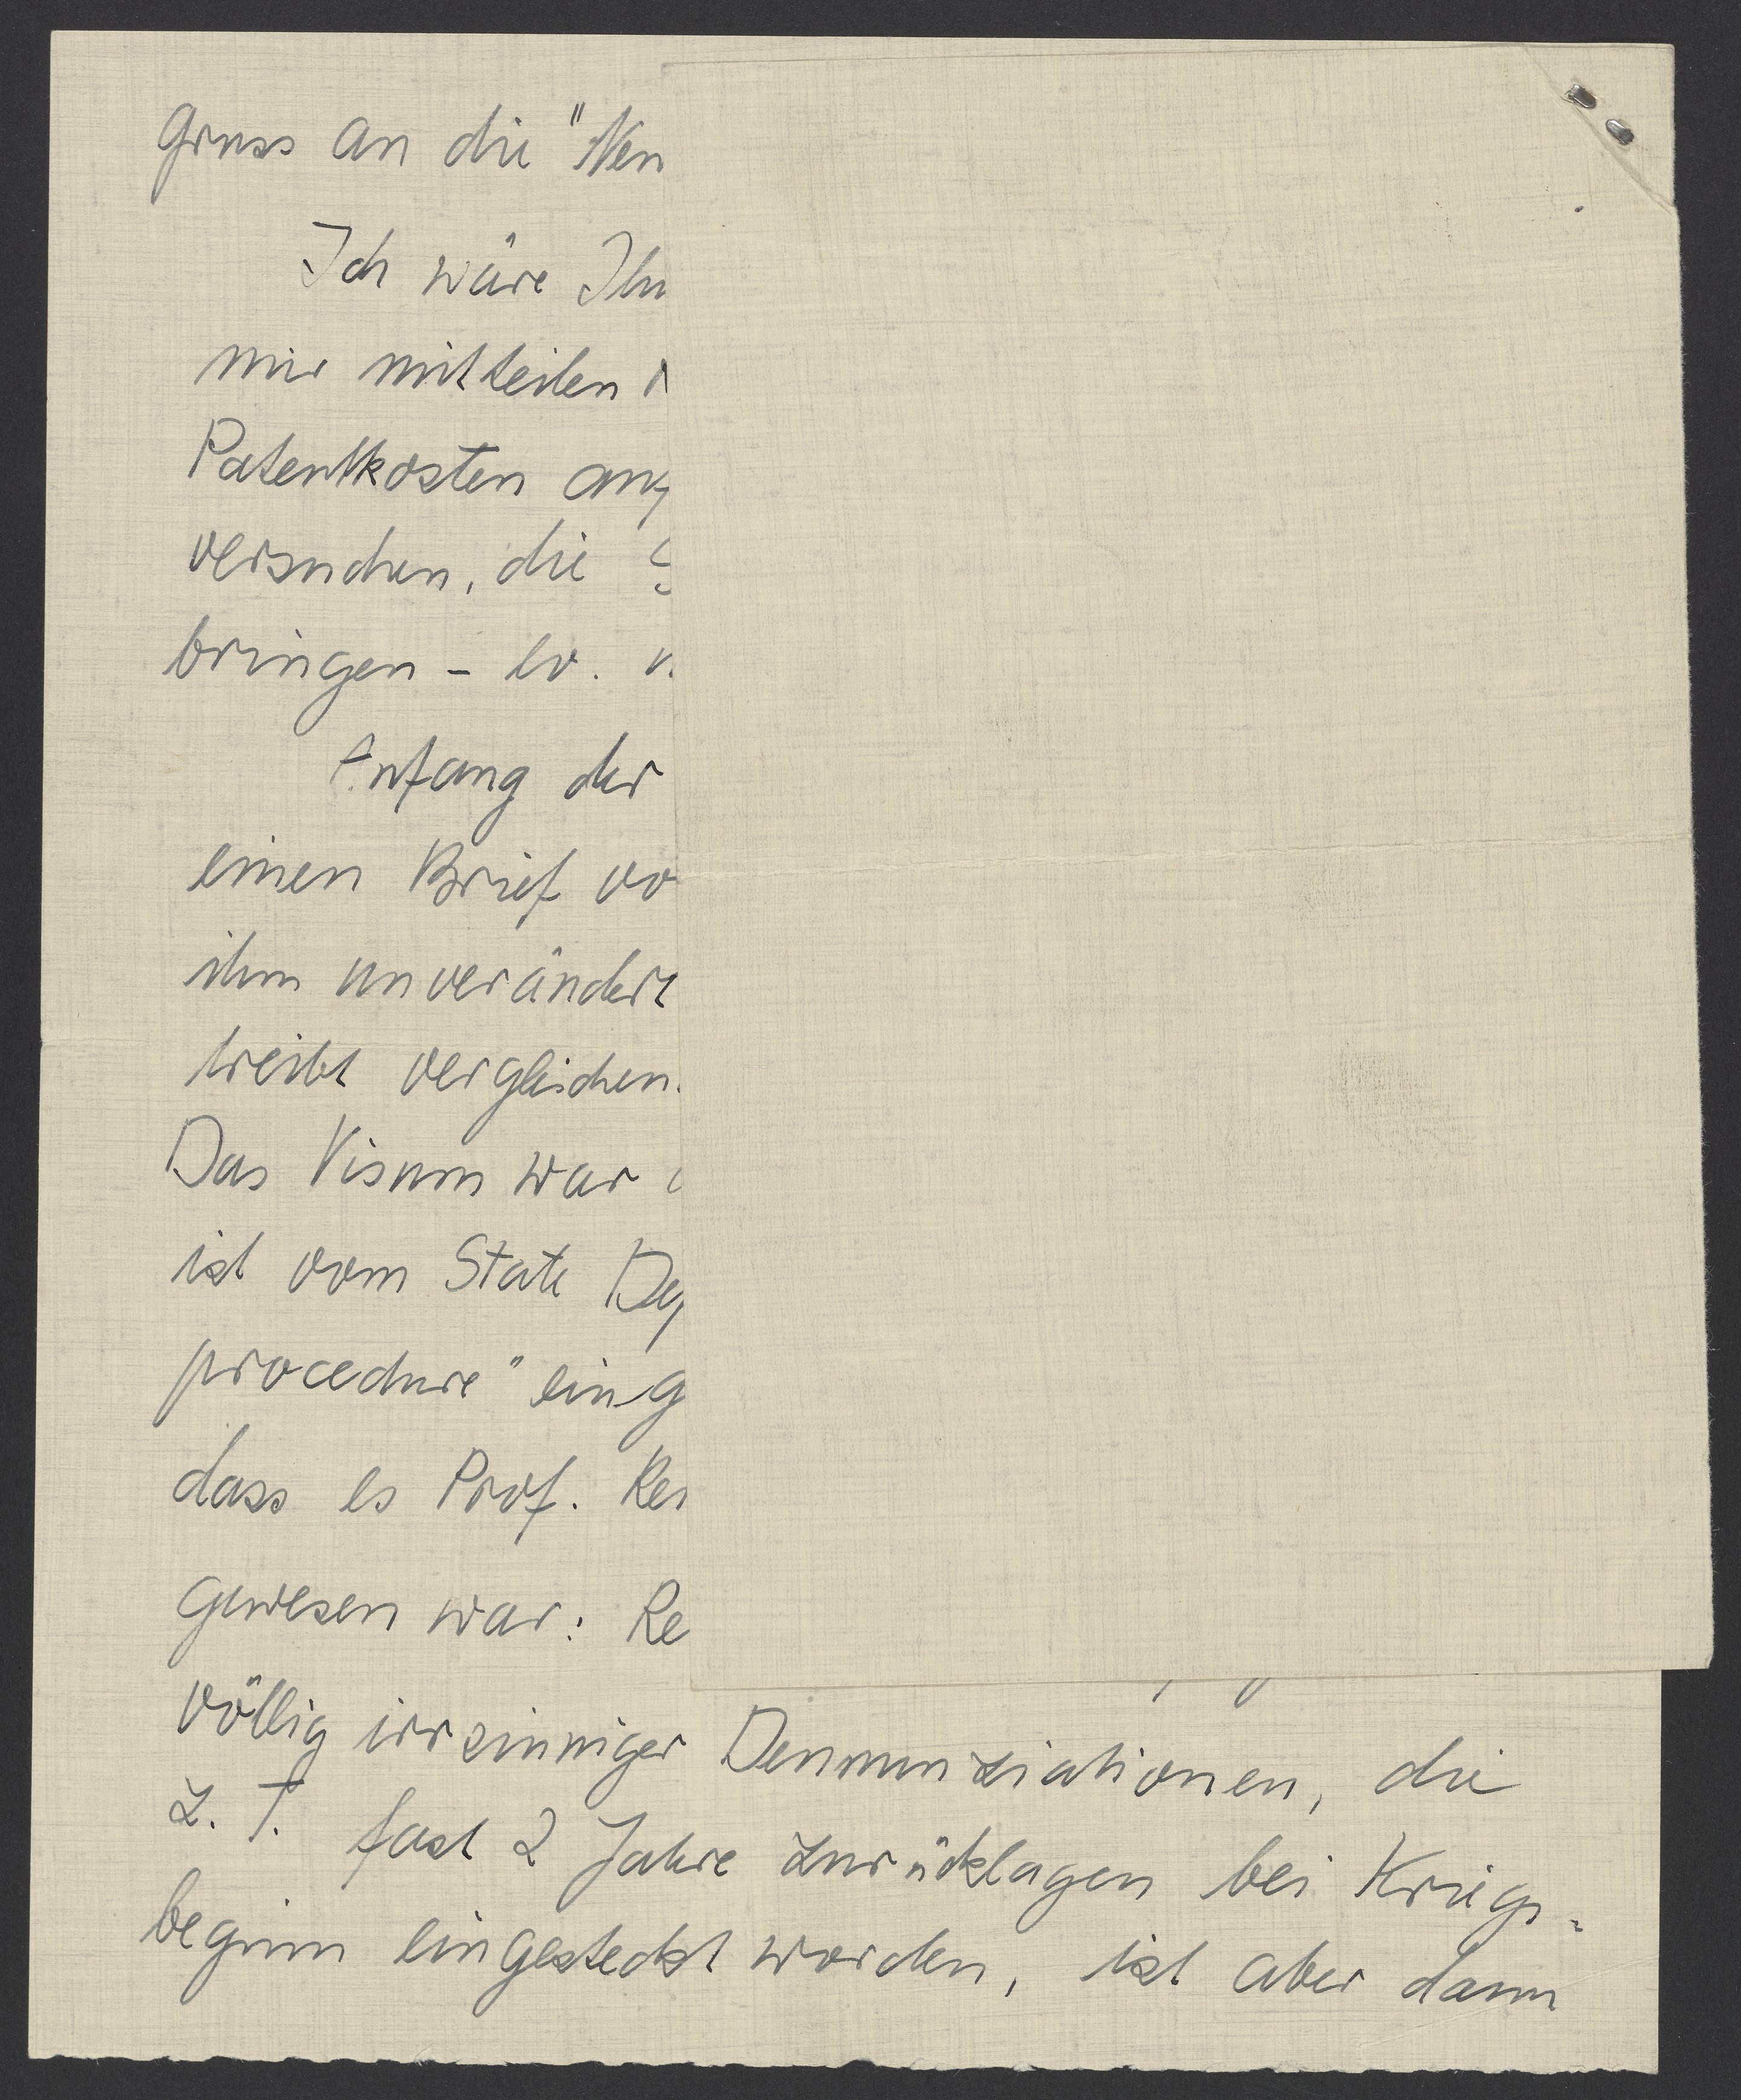 Gruss an die "Neu
Ich wäre Ihn
mir mitteilen
Patentkosten ang
versuchen, die
bringen - ev.
Anfang der
einen Brief vo
ihm unverändert
treibt vergleichen.
Das Visum war
ist vom State Dep
procedure" eing
dass es Prof. Rei
gewesen war: Re
völlig irrsinniger Denunziationen, die
z. T. fast 2 Jahre zurücklagen bei Kriegs-
beginn eingesteckt worden, ist aber dann